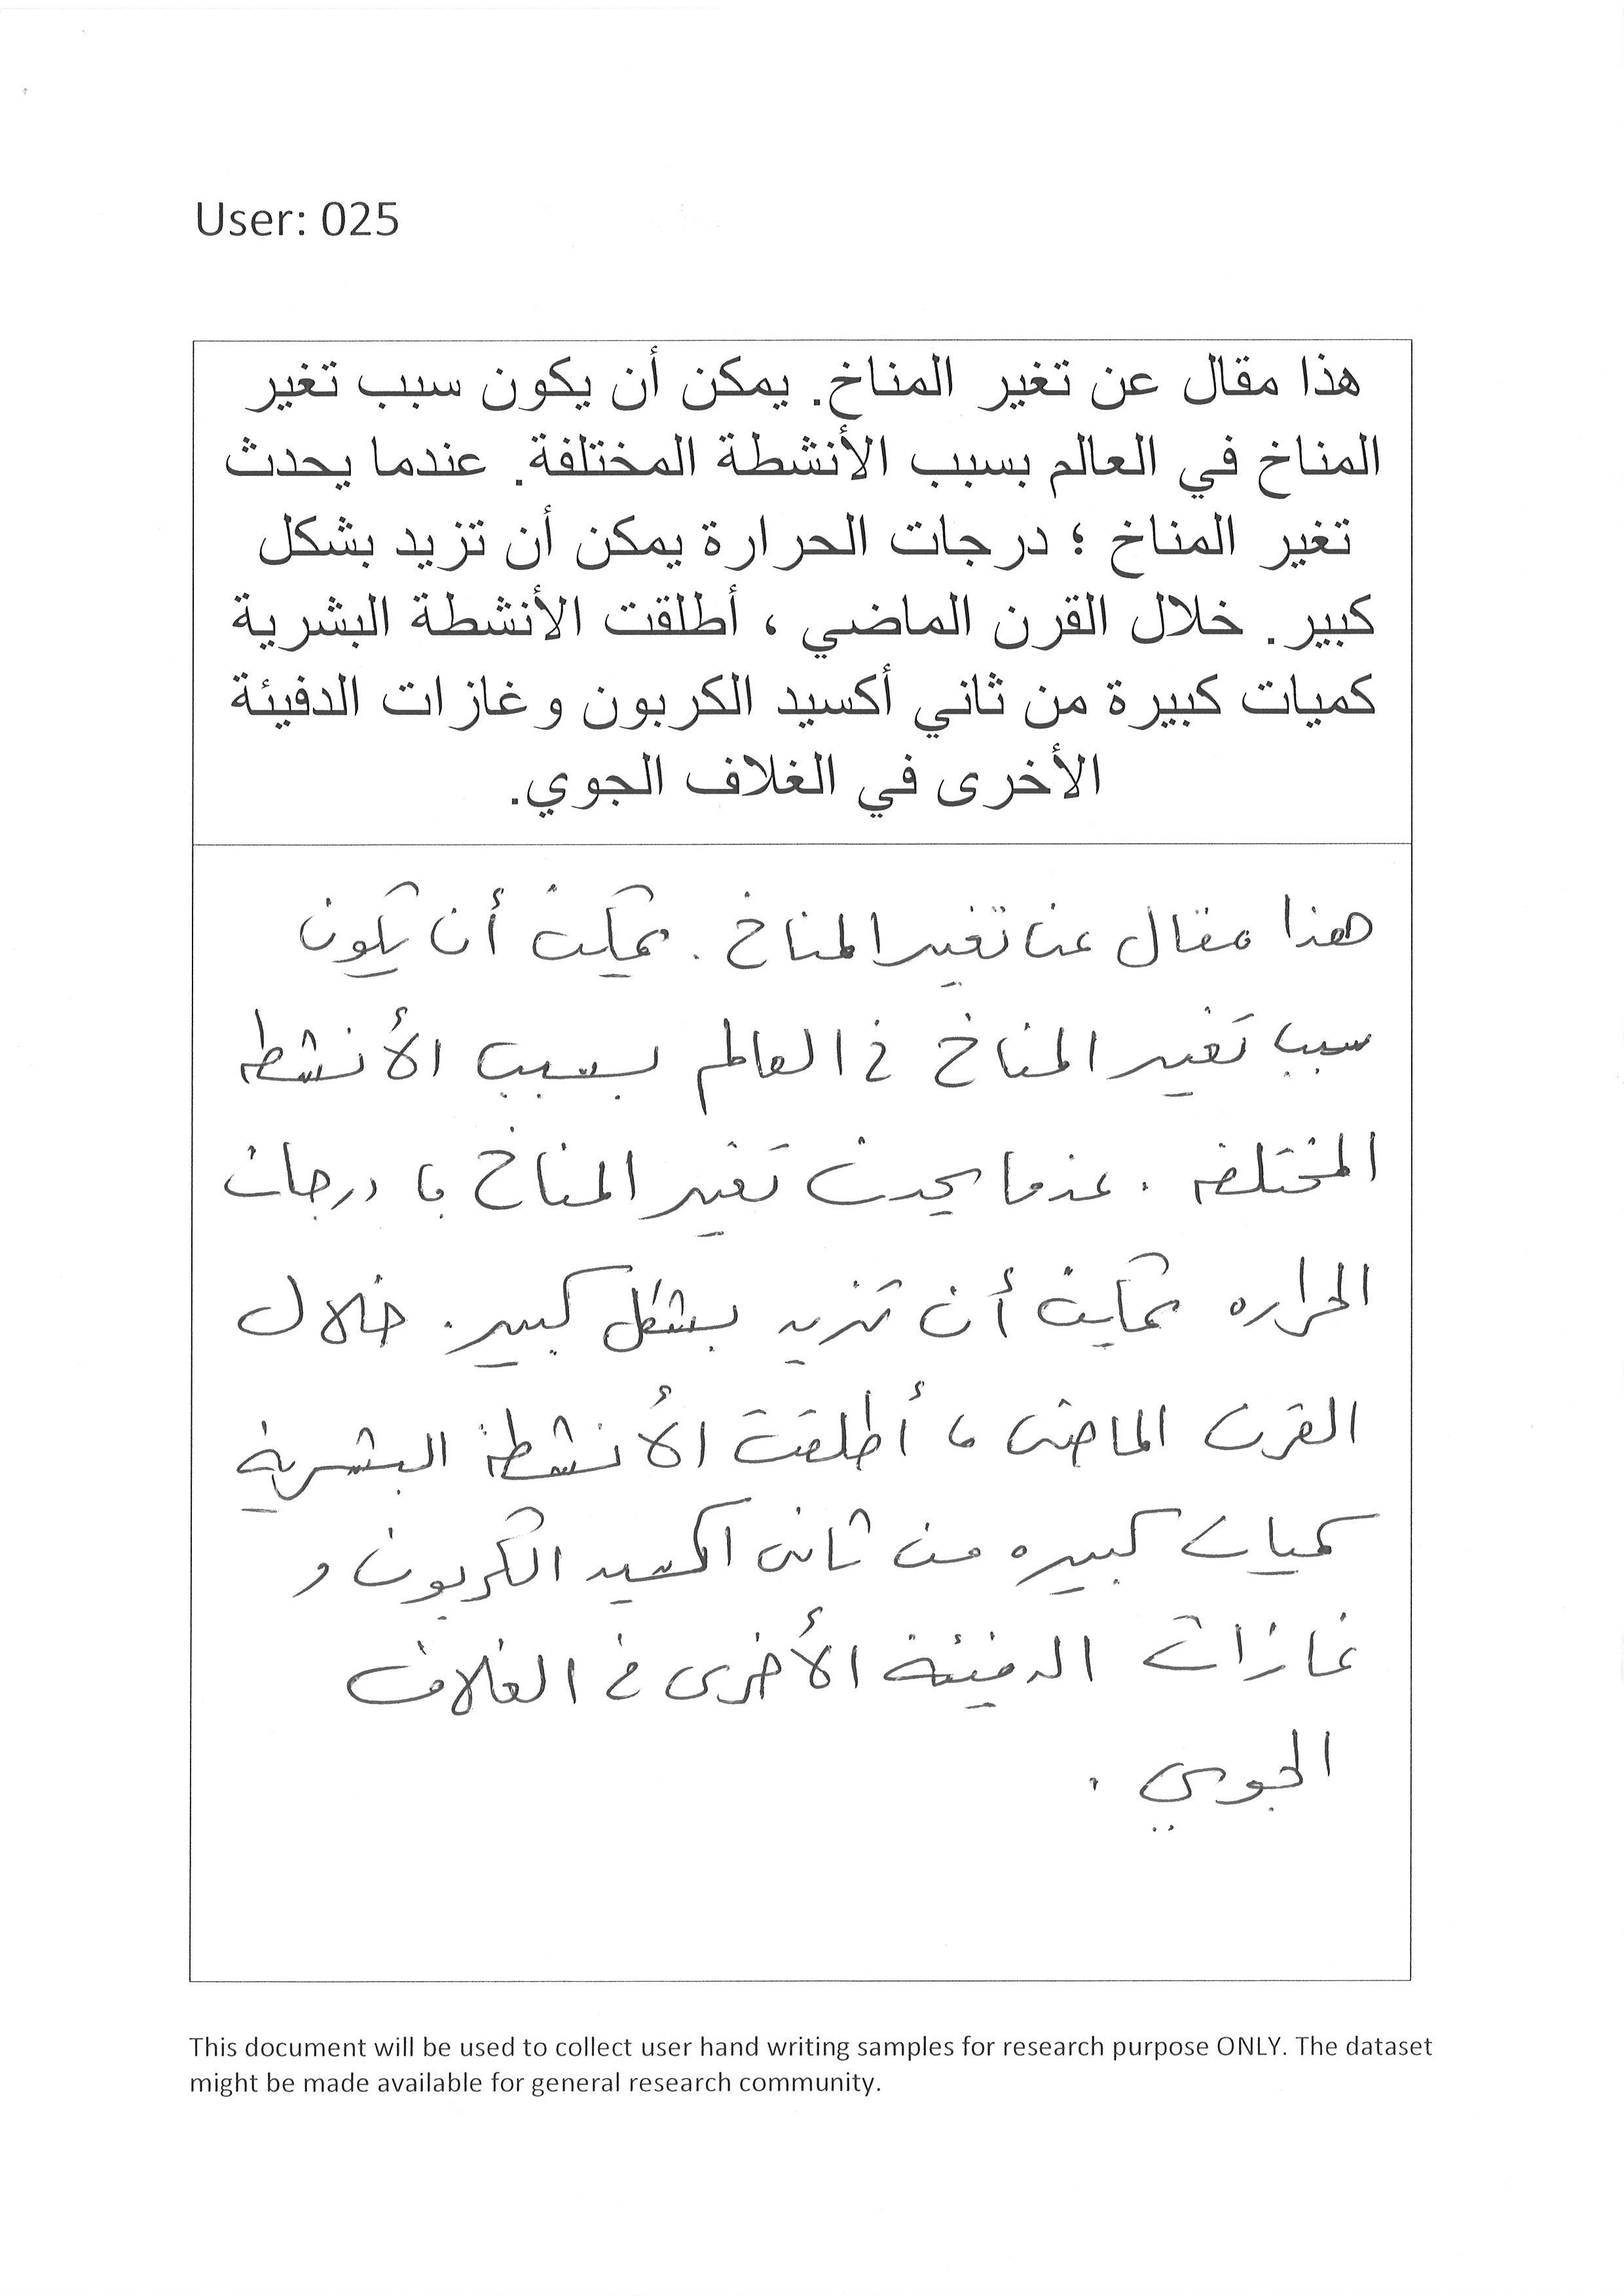 User: 025
هذا مقال عن تغير المناخ. يمكن أن يكون سبب تغير
المناخ في العالم بسبب الأنشطة المختلفة. عندما يحدث
تغير المناخ ؛ درجات الحرارة يمكن أن تزيد بشكل
كبير. خلال القرن الماضي ، أطلقت الأنشطة البشرية
كميات كبيرة من ثاني أكسيد الكربون وغازات الدفيئة
الأخرى في الغلاف الجوي.
هذا مقال عن تغير المناخ . يمكن أن يكون
سبب تغير المناخ في العالم بسبب الأنشطه
المختلفه . عندما يحدث تغير المناخ ، درجات
الحراره يمكن أن تزيد بشكل كبير . خلال
القرن الماضى ، أطلقت الأنشطة البشرية
كميات كبيره من ثانى اكسيد الكربون و
غازات الدفيئة الأخرى في الغلاف
الجوي .
This document will be used to collect user hand writing samples for research purpose ONLY. The dataset
might be made available for general research community.